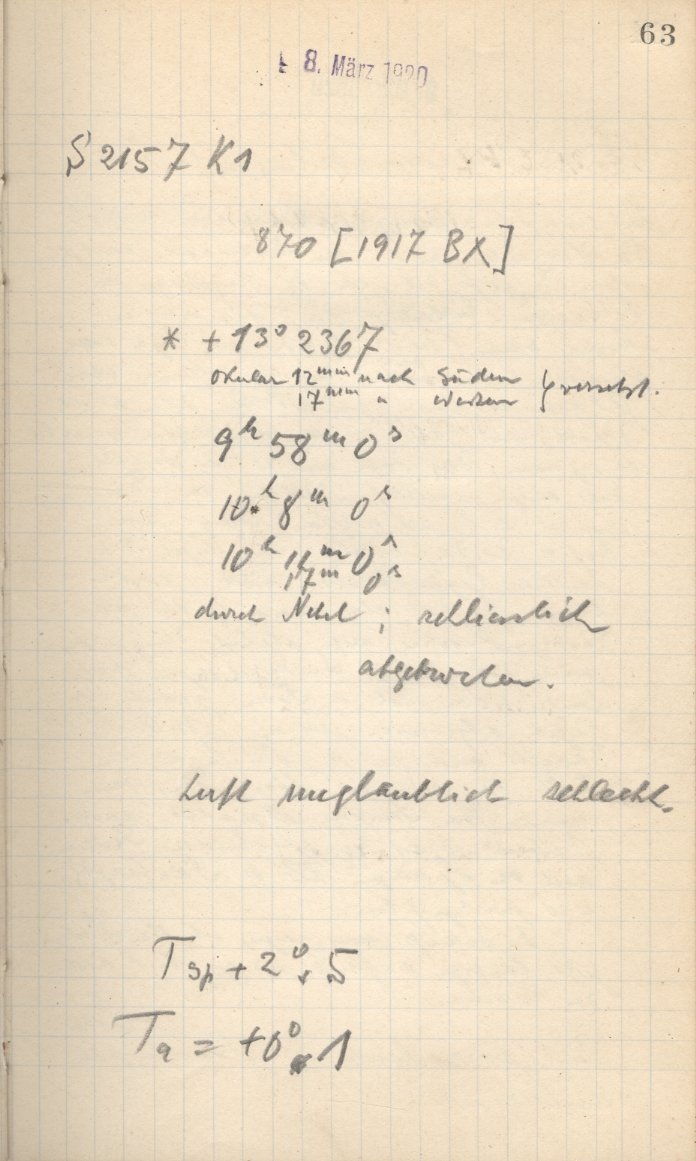 63
8. März 1920
S 2157 K1
870 [1917 BX]
* + 13° 2367
Okular 12mm nach Süden
17mm " Westen } versetzt.
9h 58m 0s
10h 8m 0s
10h 11m 0s
17m 0s
durch Nebel ; schliesslich
abgebrochen.
Luft unglaublich schlecht.
Tsp + 2°.5
Ta = +0°.1